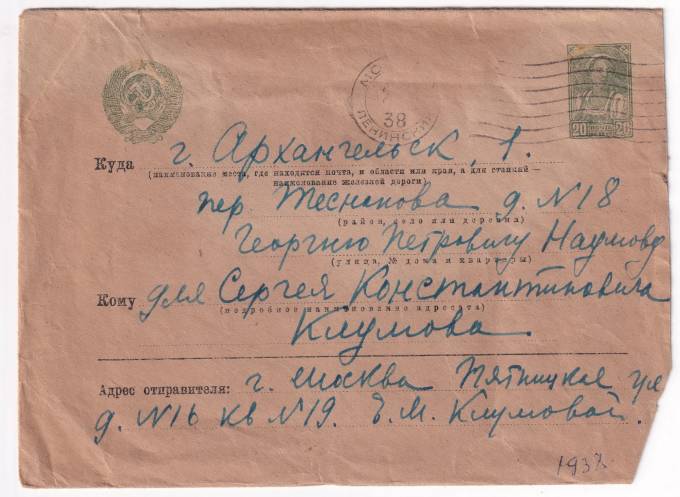 МОС
38
ЛЕНИНСКИЙ
20 ПОЧТА 20
Куда г. Архангельск, 1.
(наименование места, где находится почта, и области или края, а для станций —
наименование железной дороги)
пер Теснанова д. №18
(район, село или деревня)
Георгию Петровичу Наумову
(улица, № дома и квартиры)
Кому для Сергея Константиновича
(подробное наименование адресата)
Клумова.
Адрес отправителя: г. Москва Пятницкая ул
д. №16 кв №19. Е. М. Клумовой.
1938